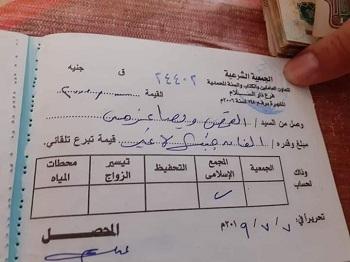 الجمعية الشرعية
لتعاون العاملين بالكتاب والسنة المحمدية
فرع دار السلام
ق جنيه
٢٤٤٠٢
القيمة
وصل من السيد /
مبلغ وقدره / ألفا جنيه لا غير قيمة تبرع تلقائى
وذلك لحساب
الجمعية
المجمع الإسلامى
التحفيظ
تيسير الزواج
محطات المياه
تحريراً فى ٧ / ٧ / ٢٠١٩م
المحصل